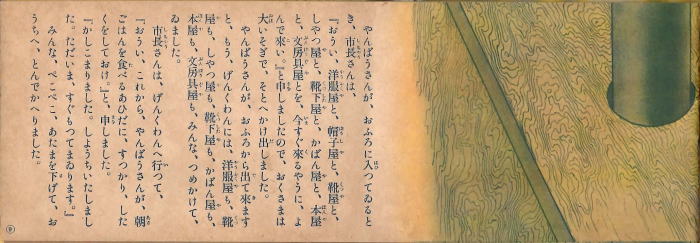 やんばうさんが、おふろに入つてゐると
き、市長さんは、
『おうい、洋服屋と、帽子屋と、靴屋と、
しやつ屋と、靴下屋と、かばん屋と、本屋
と、文房具屋とを、今すぐ來るやうに、よ
んで來い。』と申しましたので、おくさまは
大いそぎで、そとへかけ出しました。
やんばうさんが、おふろから出て來ます
と、もう、げんくわんには、洋服屋も、靴
屋も、しやつ屋も、靴下屋も、かばん屋も、
本屋も、文房具屋も、みんな、つめかけて、
ゐました。
市長さんは、げんくわんへ行つて、
『おうい、これから、やんばうさんが、朝
ごはんを食べるあひだに、すつかり、した
くをしておけ。』と、申しました。
『かしこまりました。しようちいたしまし
た。ただいま、すぐもつてまゐります。』
みんな、ぺこぺこ、あたまを下げて、お
うちへ、とんでかへりました。
9